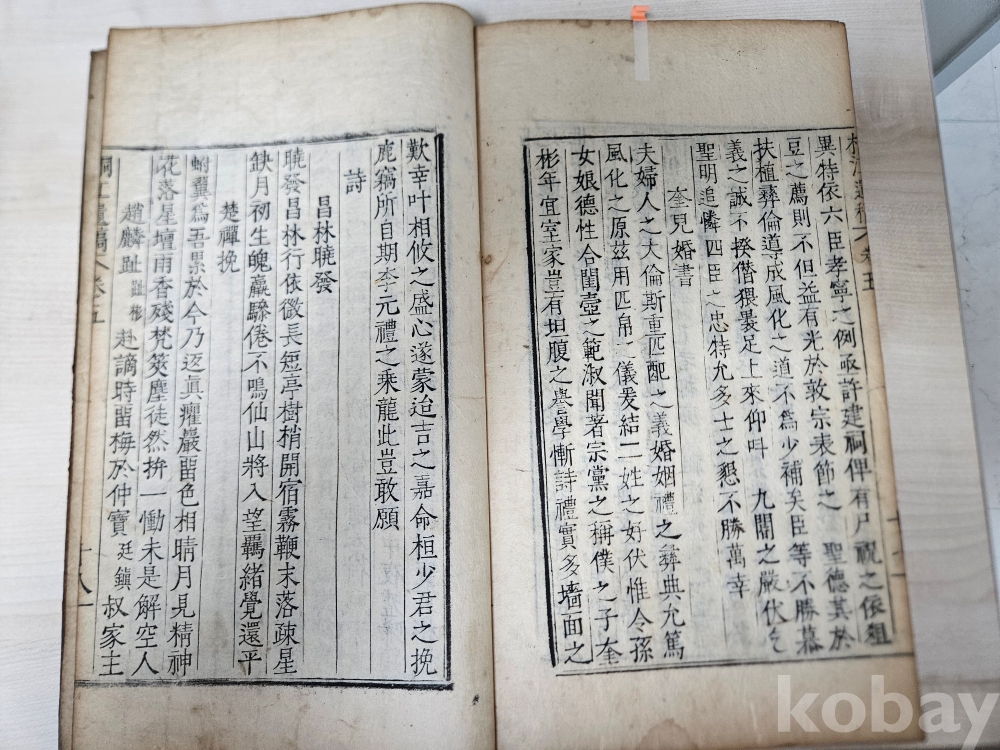 異特依六臣孝寧之例亟許建祠俾有尸祝之依俎
豆之薦則不但益有光於敦宗表節之 聖德其於
扶植彝倫導成風化之道不爲少補矣臣等不勝慕
義之誠不揆僭猥裹足上來仰呌 九閽之嚴伏乞
聖明追憐四臣之忠特允多士之懇不勝萬幸
奎兒婚書
夫婦人之大倫斯重匹配之義婚姻禮之彝典允篤
風化之原玆用匹帛之儀爰結二姓之好伏惟令孫
女娘德性合閨壼之範淑聞著宗黨之稱僕之子奎
彬年宜室家豈有坦腹之擧學慚詩禮實多墻面之
歎幸叶相攸之盛心遂蒙迨吉之嘉命桓少君之挽
鹿竊所自期李元禮之乘龍此豈敢願
詩
昌林曉發
曉發昌林行依微長短亭樹梢開宿霧鞭末落疎星
缺月初生魄羸驂倦不鳴仙山將入望羈緖覺還平
楚禪挽
蚹翼爲吾累於今乃返眞癯巖留色相晴月見精神
花落星壇雨香殘梵筴塵徒然拚一慟未是解空人
趙麟趾 趾彬 赴謫時留梅於仲寶 廷鎭 叔家主
遺稿 卷之五
十八
卷五
kobay